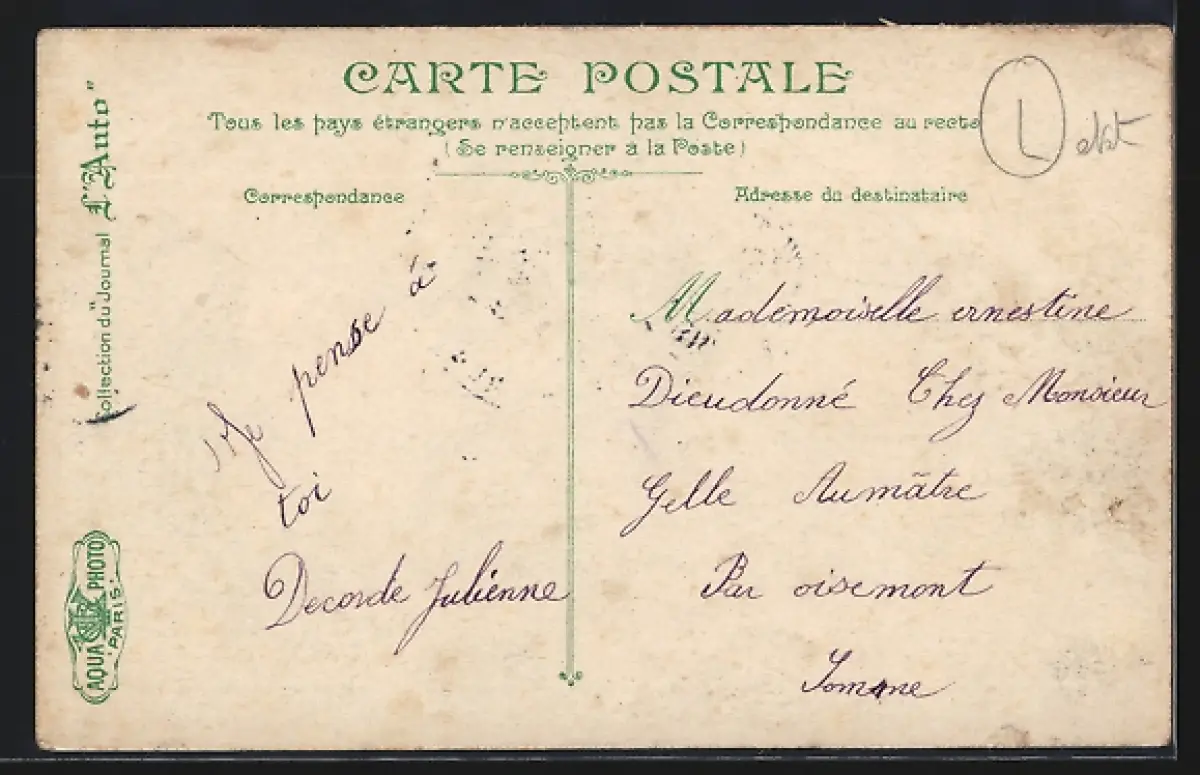 CARTE POSTALE
Tous les pays étrangers n'acceptent pas la Correspondance au recto
(Se renseigner à la Poste)
Correspondance
Adresse du destinataire
Collection du Journal L'Auto"
AQUA PHOTO
PARIS
L
Je pense à
toi
Decorde Julienne
Mademoiselle ernestine
Dieudonné Chez Monsieur
Gelle Aumâtre
Par oisemont
Somme